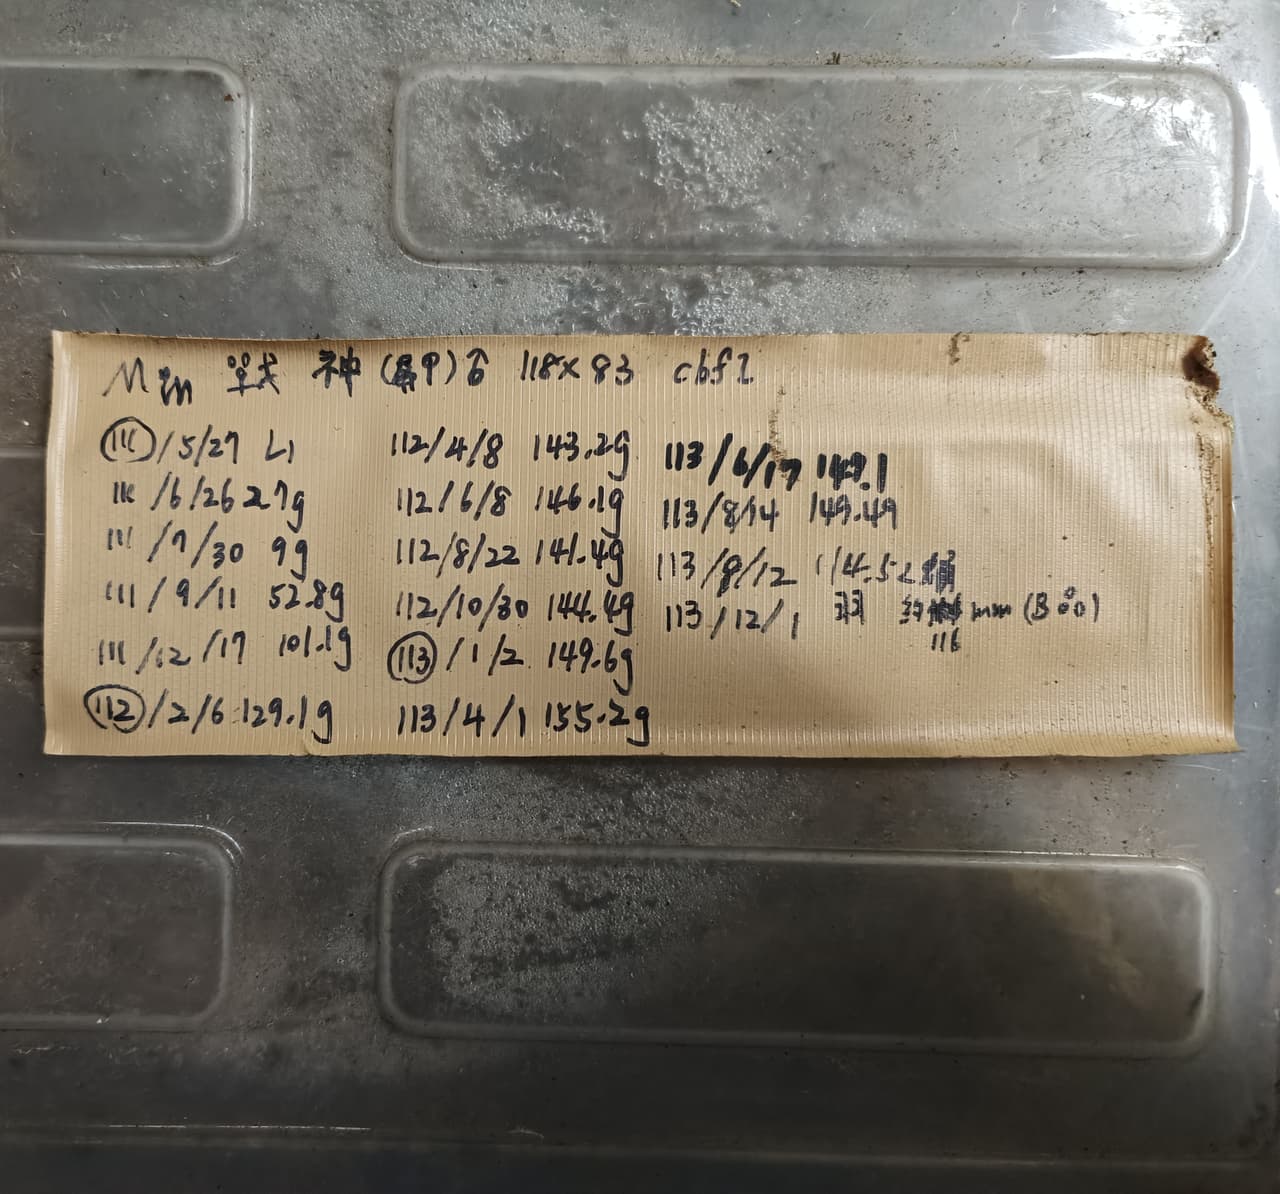 Min 戰 神 (甲)♂ 118×83 cbf2
111/5/27 L1
111/6/26 2.7g
111/7/30 9g
111/9/11 52.8g
111/12/17 101.1g
112/2/6 129.1g
112/4/8 143.2g
112/6/8 146.1g
112/8/22 141.4g
112/10/30 144.4g
113/1/2 149.6g
113/4/1 155.2g
113/6/17 149.1
113/8/14 149.49
113/9/12 114.5
113/12/1 羽 mm (B
116